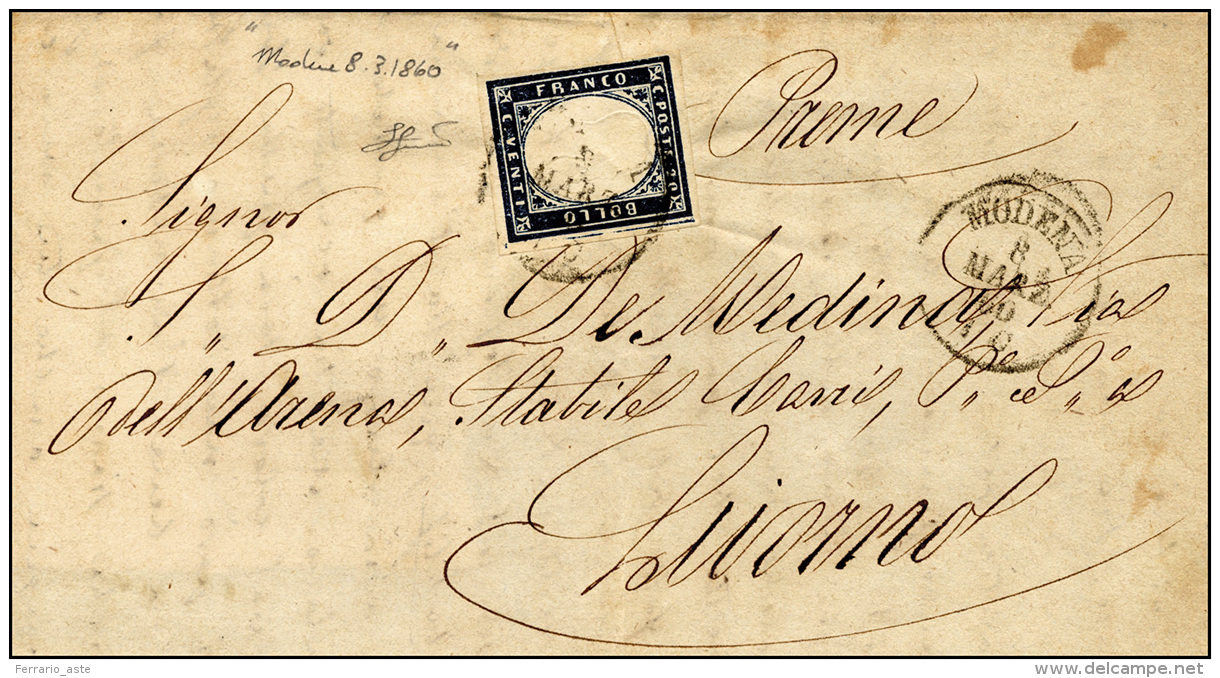 " Modena 8.3.1860 "
FRANCO
C. POSTE 20
BOLLO
C. VENTI
MARZ
Preme
MODENA
8
MARZ
60
Signor
S. D. De Medina, Via
dell'Arena, Stabile
Livorno
Ferrario_aste
www.delcampe.net